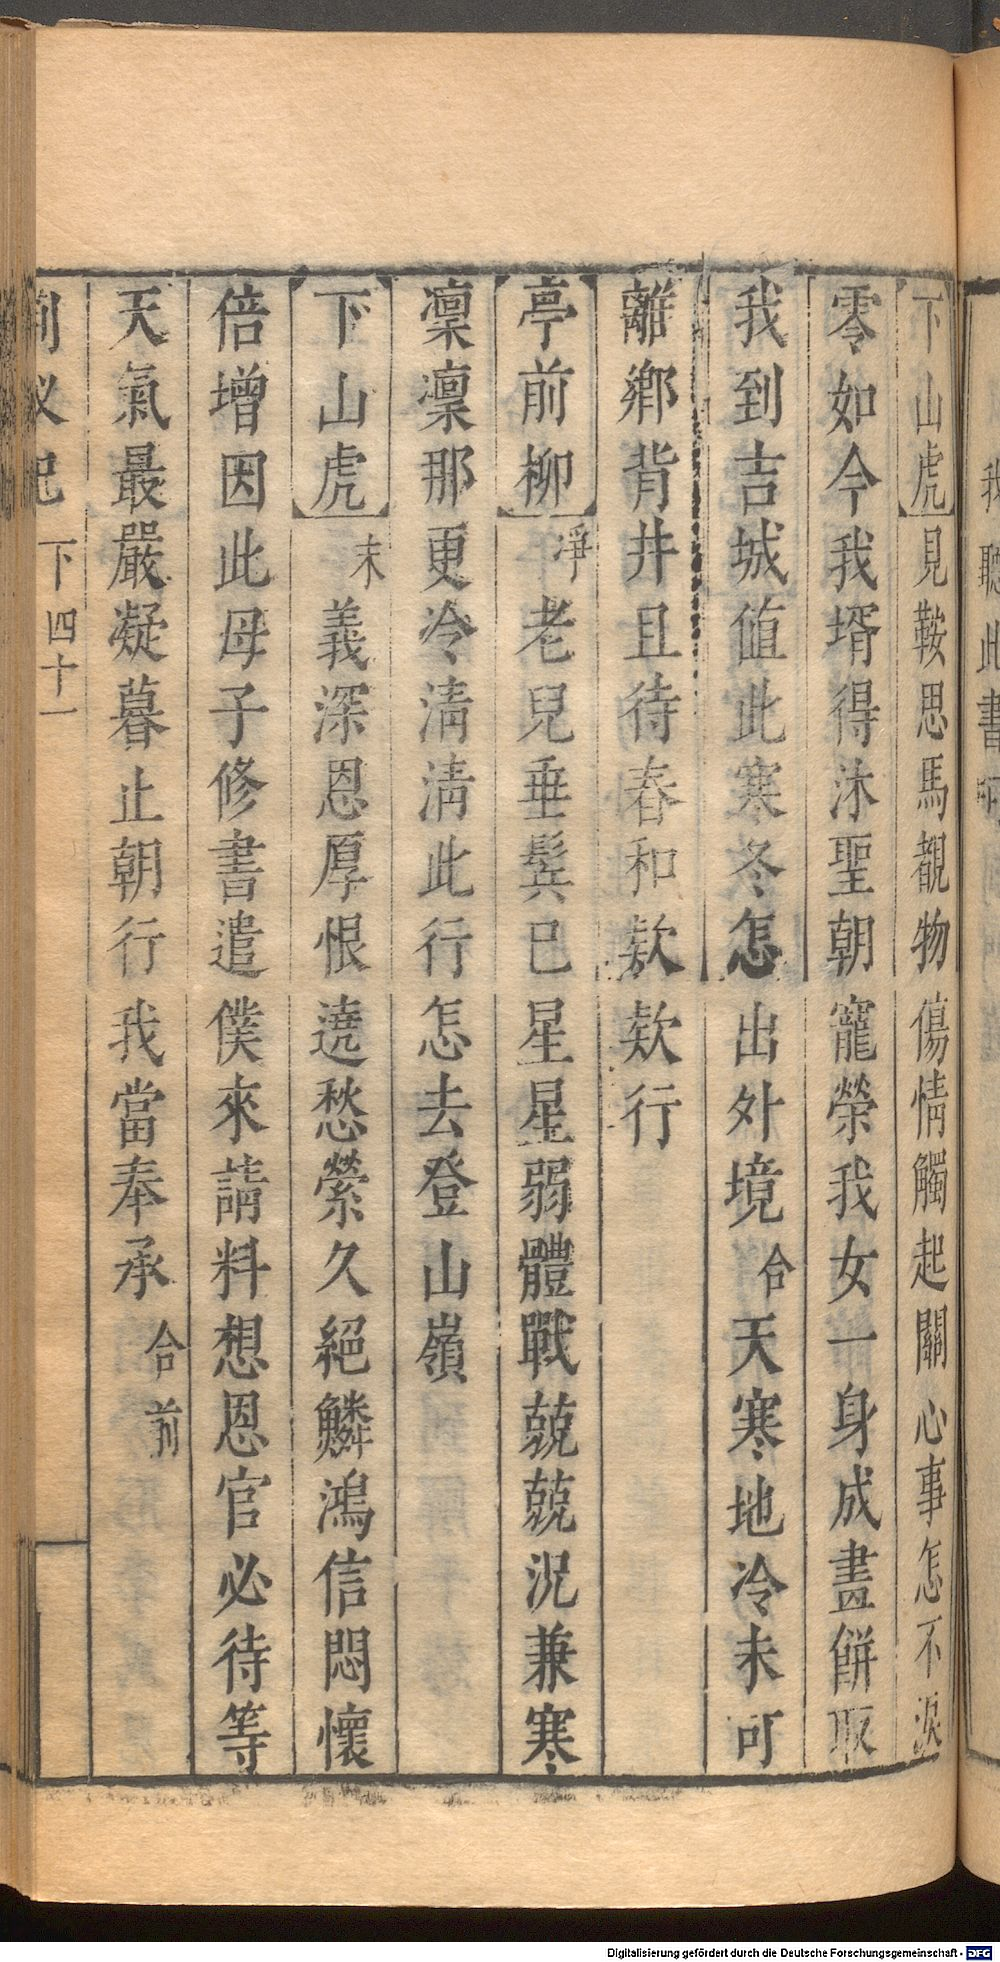 我聽此書
下山虎見鞍思馬覩物傷情觸起關心事怎不淚
零如今我壻得沐聖朝寵榮我女一身成畫餅取
我到吉城值此寒冬怎出外境合天寒地冷未可
離鄉背井且待春和欵欵行
亭前柳淨老兒垂鬂已星星弱體戰兢兢况兼寒
凜凜那更冷淸淸此行怎去登山嶺
下山虎末義深恩厚恨遶愁縈久絕鱗鴻信悶懷
倍增因此母子修書遣僕來請料想恩官必待等
天氣最嚴凝暮止朝行我當奉承合前
下四十一
Digitalisierung gefördert durch die Deutsche Forschungsgemeinschaft - DFG